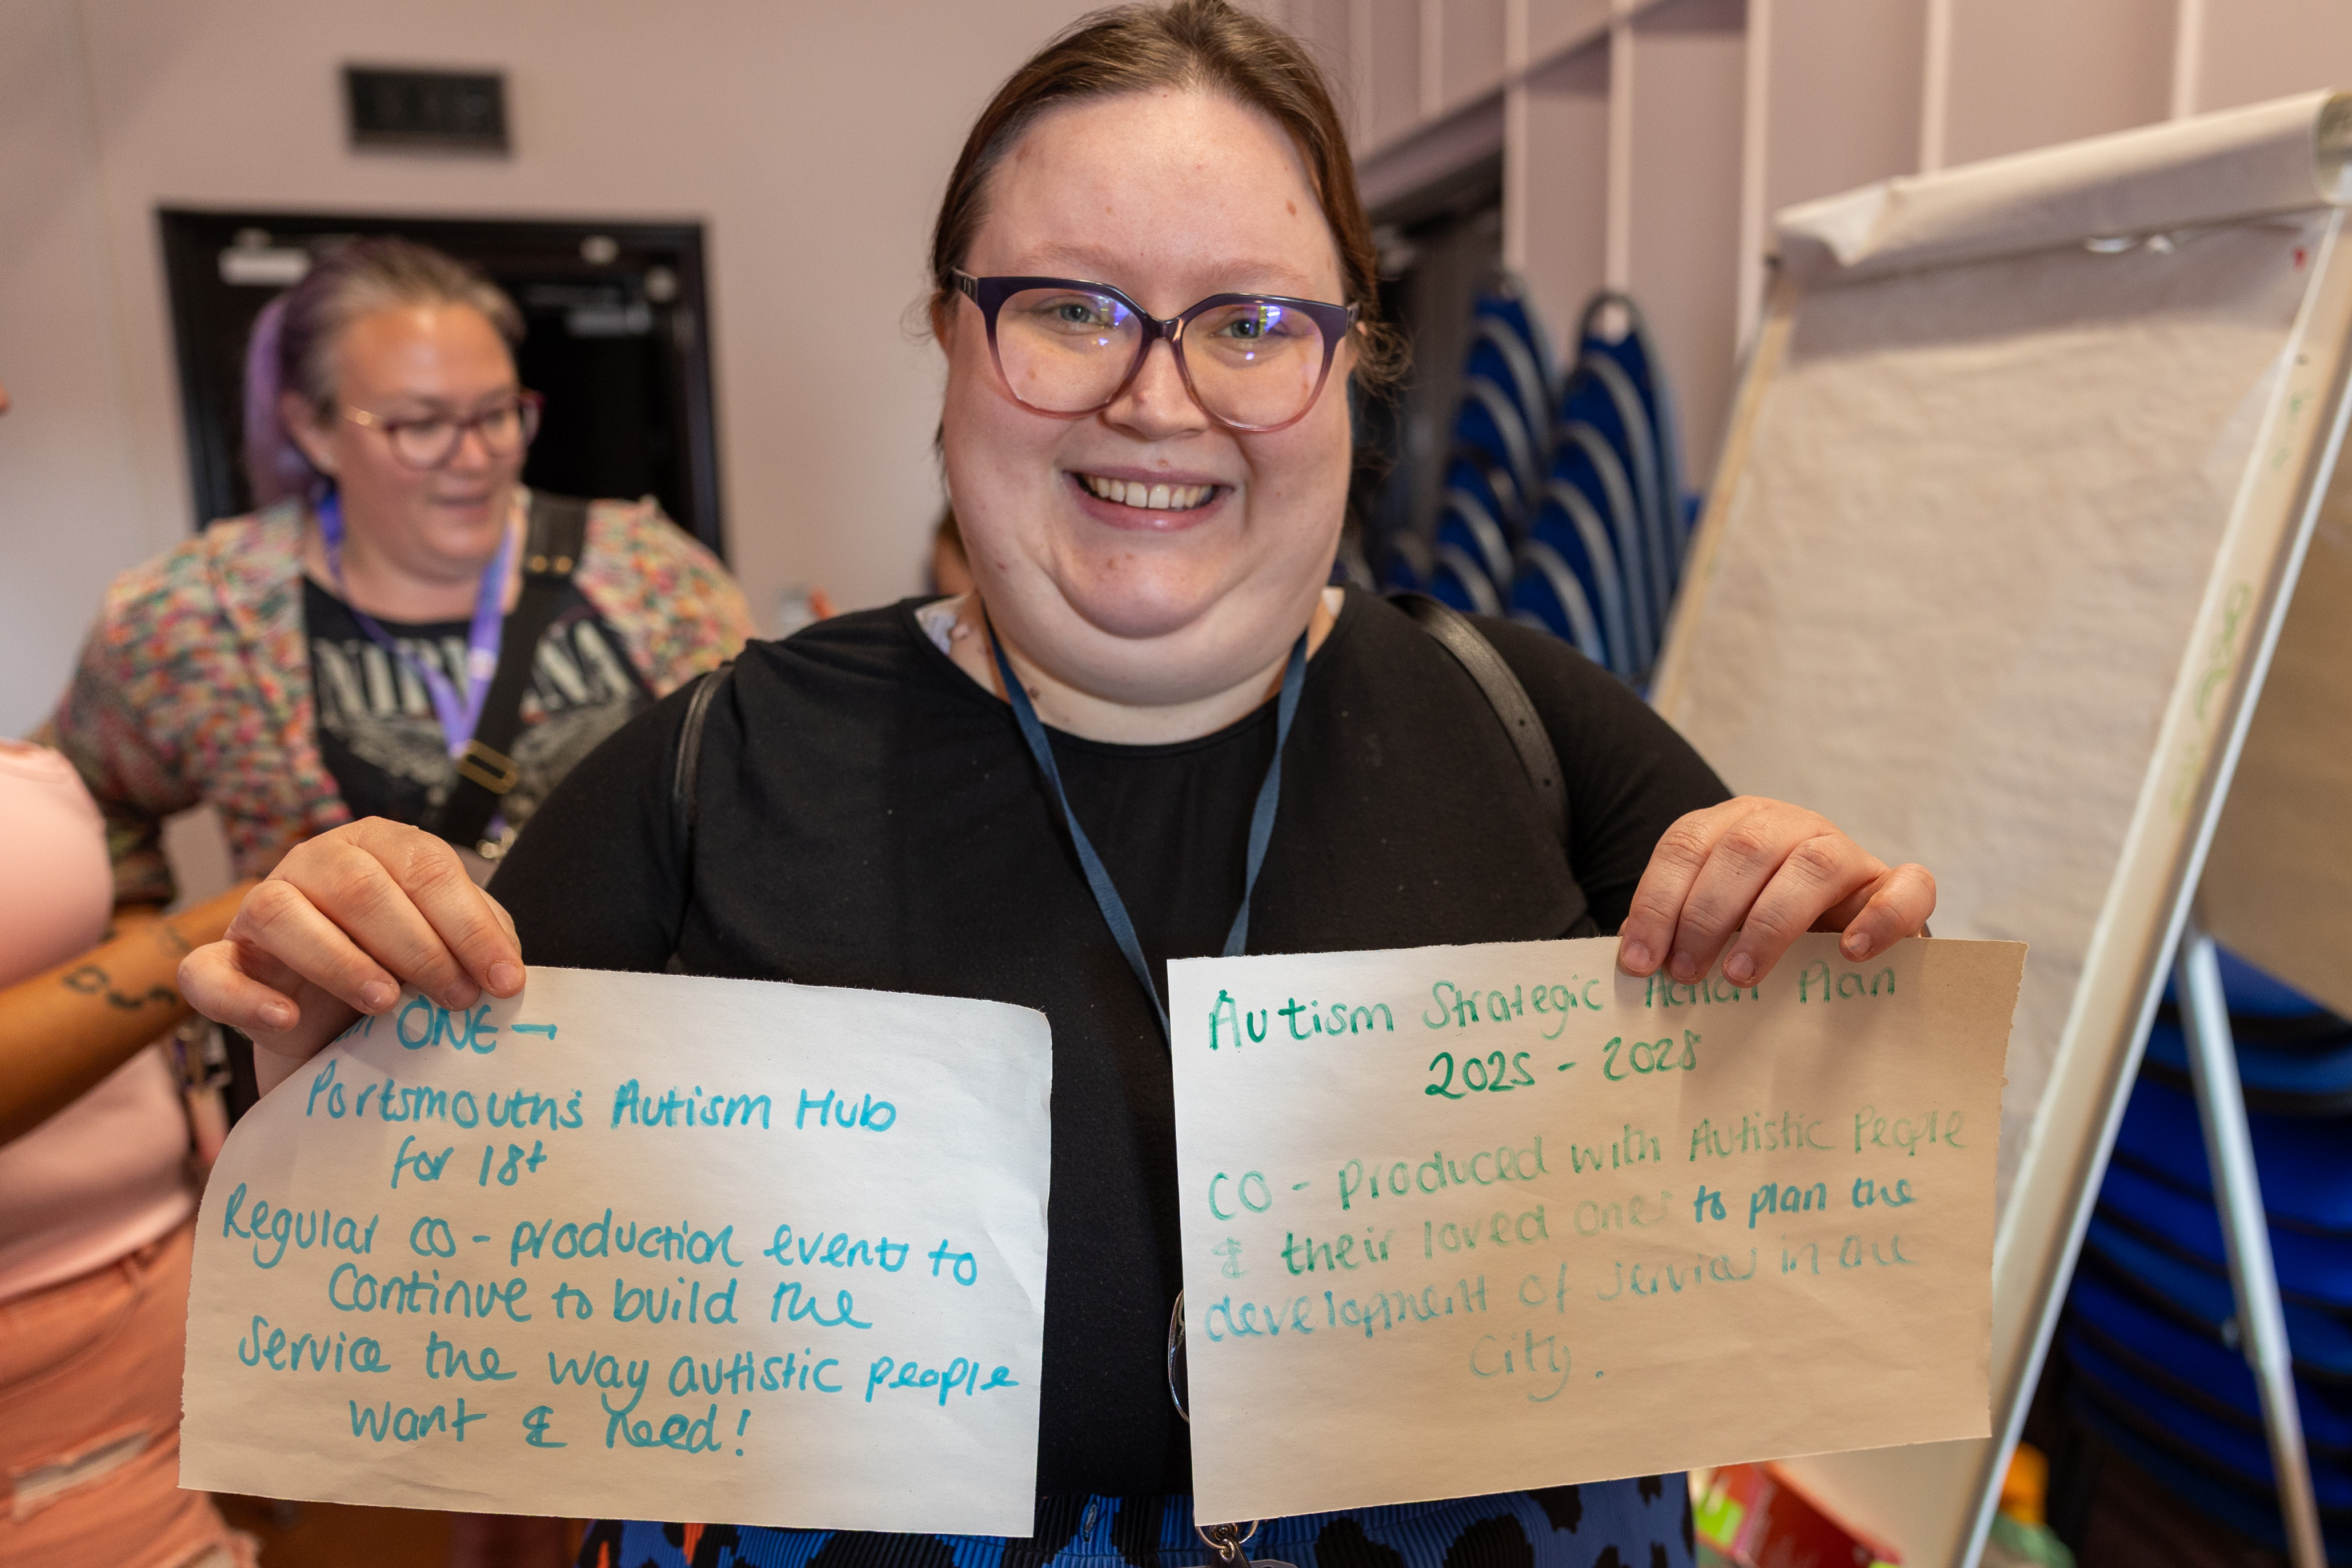 NIRVANA
ONE —
Portsmouth's Autism Hub
for 18+
Regular co-production events to
Continue to build the
Service the way autistic people
want & need!
Autism Strategic Action Plan
2025 - 2028
CO-produced with Autistic People
& their loved ones to plan the
development of services in the
City.